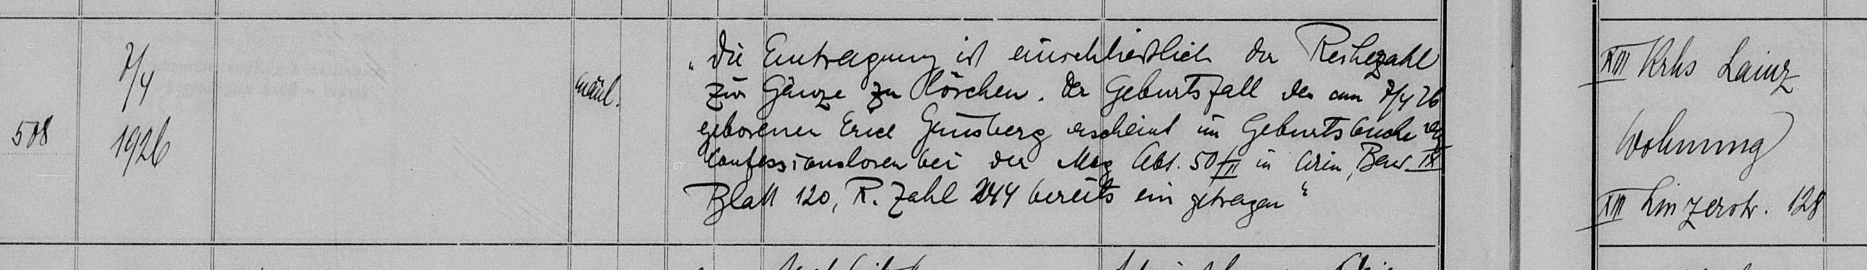 508
7/4
1926
männl.
„Die Eintragung ist einschließlich der Reihezahl
zur Gänze zu löschen. Der Geburtsfall des am 7/4 26
geborenen Erich Ginsberg erscheint im Geburtsbuche der
Confessionslosen bei der Mag. Abt. 50/II in Wien, Band IX
Blatt 120, R. Zahl 244 bereits eingetragen“
XIII Krhs Lainz
Wohnung
XIII Linzerstr. 128